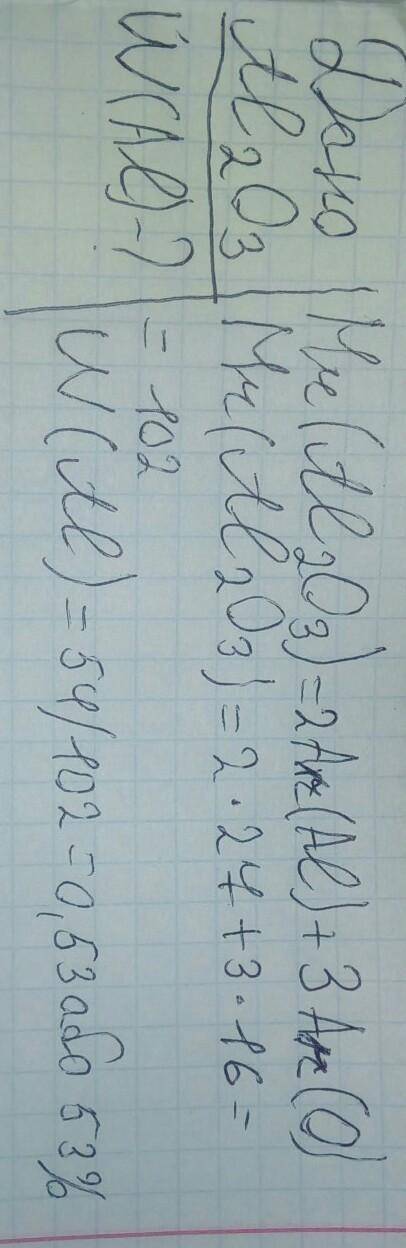 Дано
Al₂O₃
W(Al)-?
Mr(Al₂O₃)=2Ar(Al)+3Ar(O)
Mr(Al₂O₃)=2·27+3·16=
=102
W(Al)=54/102=0,53 або 53%